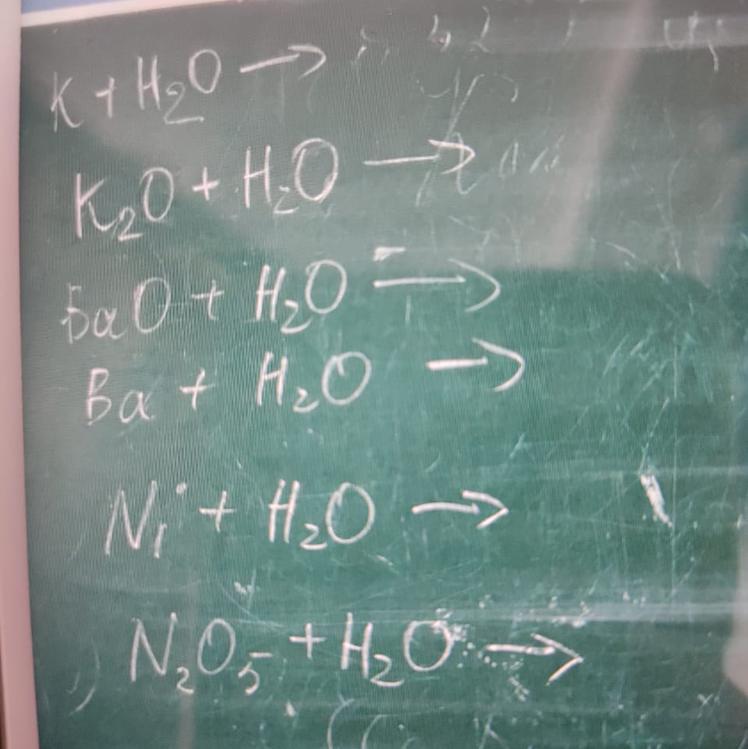 K + H₂O →
K₂O + H₂O →
BaO + H₂O →
Ba + H₂O →
Ni + H₂O →
N₂O₅ + H₂O →